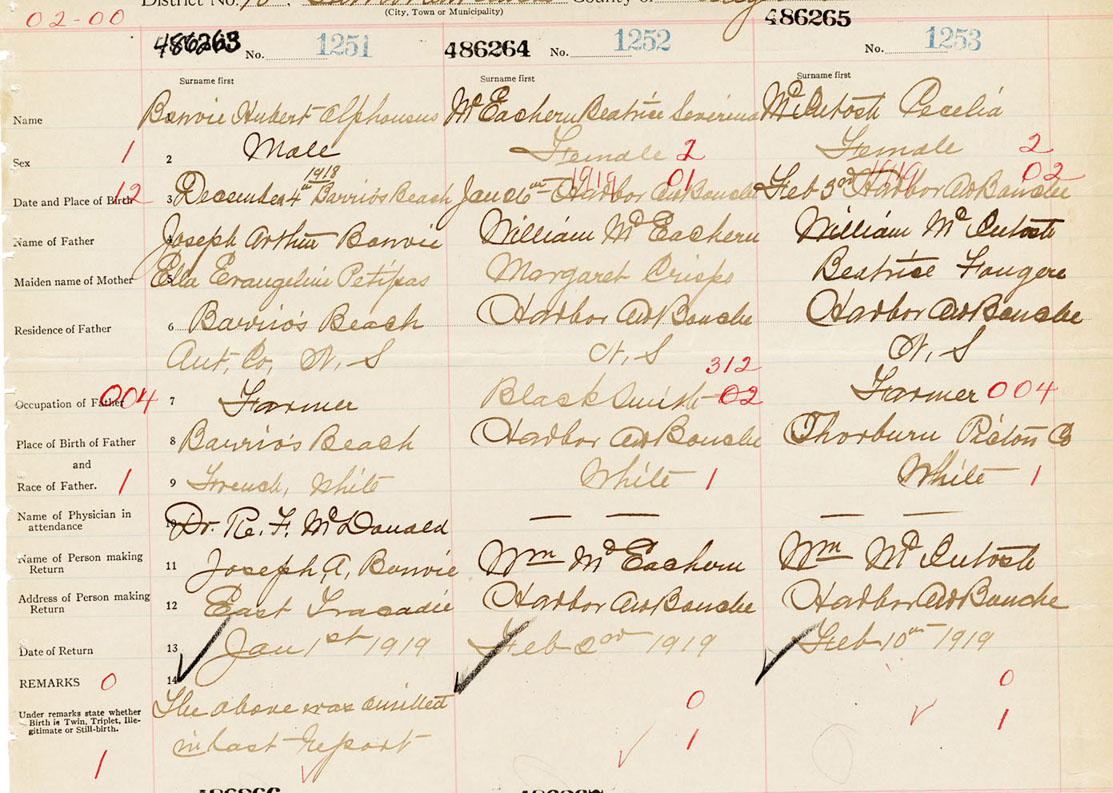 02-00
District No. 10, County of
(City, Town or Municipality)
486263 No. 1251 486264 No. 1252 486265 No. 1253
Surname first Surname first Surname first
Name Bonvie Hubert Alphonsus McEachern Beatrice Severina McIntosh Cecelia
Sex 1 2 Male Female 2 Female 2
1918 1919 01 1919 02
Date and Place of Birth 12 3 December 4th Barrio's Beach Jan 26th Harbor Au Bouche Feb 3rd Harbor Au Bouche
Name of Father 4 Joseph Arthur Bonvie William McEachern William McIntosh
Maiden name of Mother 5 Ella Evangeline Petipas Margaret Crispo Beatrice Fougere
Residence of Father 6 Barrio's Beach Harbor Au Bouche Harbor Au Bouche
Ant. Co, N. S N. S N. S
312
Occupation of Father 004 7 Farmer Blacksmith 02 Farmer 004
Place of Birth of Father 8 Barrio's Beach Harbor Au Bouche Thorburn Pictou Co
and
Race of Father. 1 9 French, White White 1 White 1
Name of Physician in attendance 10 Dr. R. F. McDonald — — — —
Name of Person making Return 11 Joseph A. Bonvie Wm McEachern Wm McIntosh
Address of Person making Return 12 East Tracadie Harbor Au Bouche Harbor Au Bouche
Date of Return 13 Jan 1st 1919 Feb 2nd 1919 Feb 10th 1919
REMARKS 0 14 The above was omitted 0 0
Under remarks state whether Birth is Twin, Triplet, Illegitimate or Still-birth. in last report 1 1
1
486266 486267